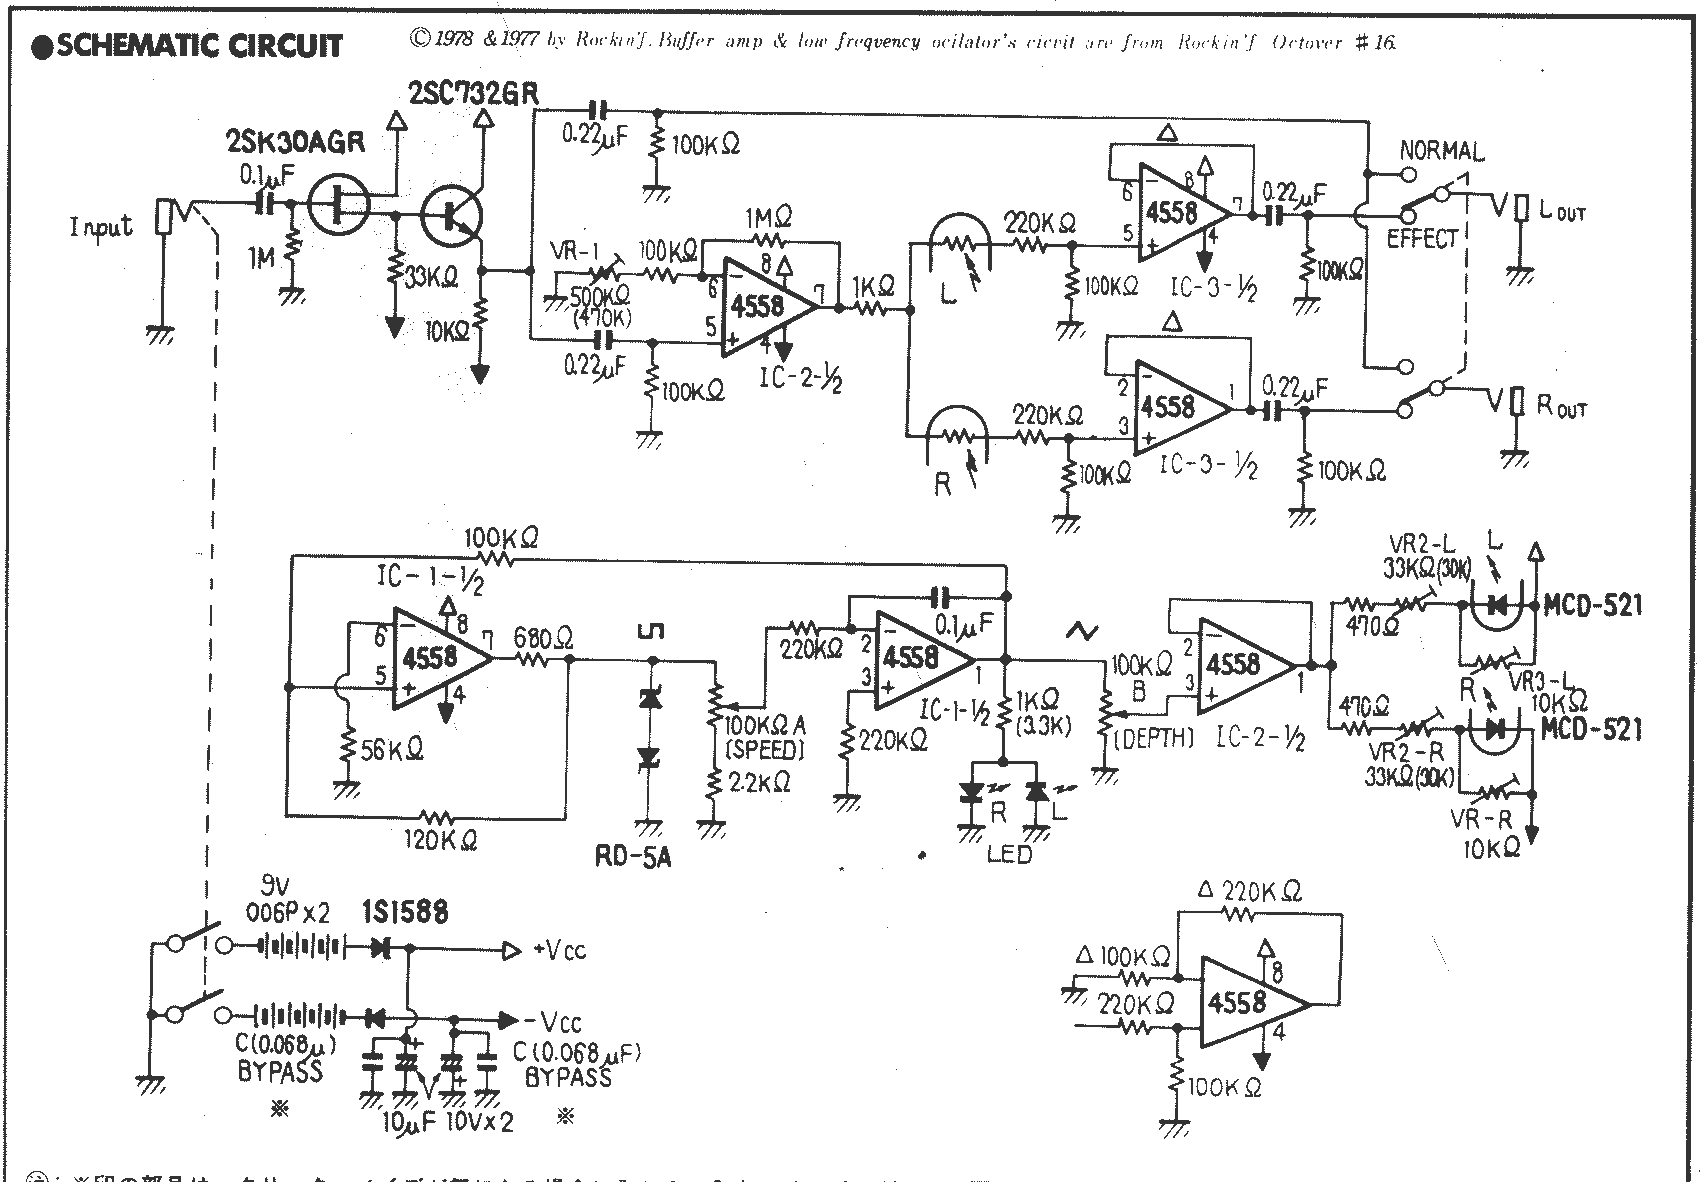 ●SCHEMATIC CIRCUIT
©1978 & 1977 by Rockin'f. Buffer amp & low frequency ocilator's circit are from Rockin'f Octover #16.
2SC732GR
2SK30AGR
0.1μF
Input
1M
33KΩ
10KΩ
0.22μF
100KΩ
VR-1
500KΩ
(470K)
100KΩ
1MΩ
0.22μF
100KΩ
6
5
8
4558
7
4
IC-2-½
1KΩ
L
220KΩ
100KΩ
6
5
8
4558
7
4
IC-3-½
△
0.22μF
100KΩ
NORMAL
EFFECT
L OUT
R
220KΩ
100KΩ
△
2
3
4558
1
IC-3-½
0.22μF
100KΩ
R OUT
100KΩ
IC-1-½
6
5
8
4558
7
4
680Ω
56KΩ
120KΩ
RD-5A
100KΩA
(SPEED)
2.2KΩ
220KΩ
0.1μF
2
3
4558
1
IC-1-½
220KΩ
1KΩ
(3.3K)
R
L
LED
100KΩ
B
(DEPTH)
2
3
4558
1
IC-2-½
470Ω
VR2-L
33KΩ(30K)
L
MCD-521
VR3-L
10KΩ
470Ω
VR2-R
33KΩ(30K)
R
MCD-521
VR-R
10KΩ
9V
006P×2
1S1588
+Vcc
-Vcc
C(0.068μ)
BYPASS
※
10μF 10V×2
C(0.068μF)
BYPASS
※
△ 220KΩ
△ 100KΩ
220KΩ
8
4558
4
100KΩ